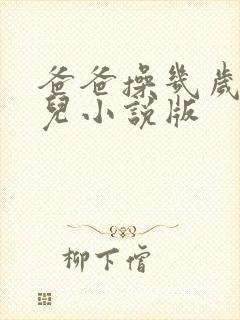 爸爸操幾歲
兒小說版
柳下僧